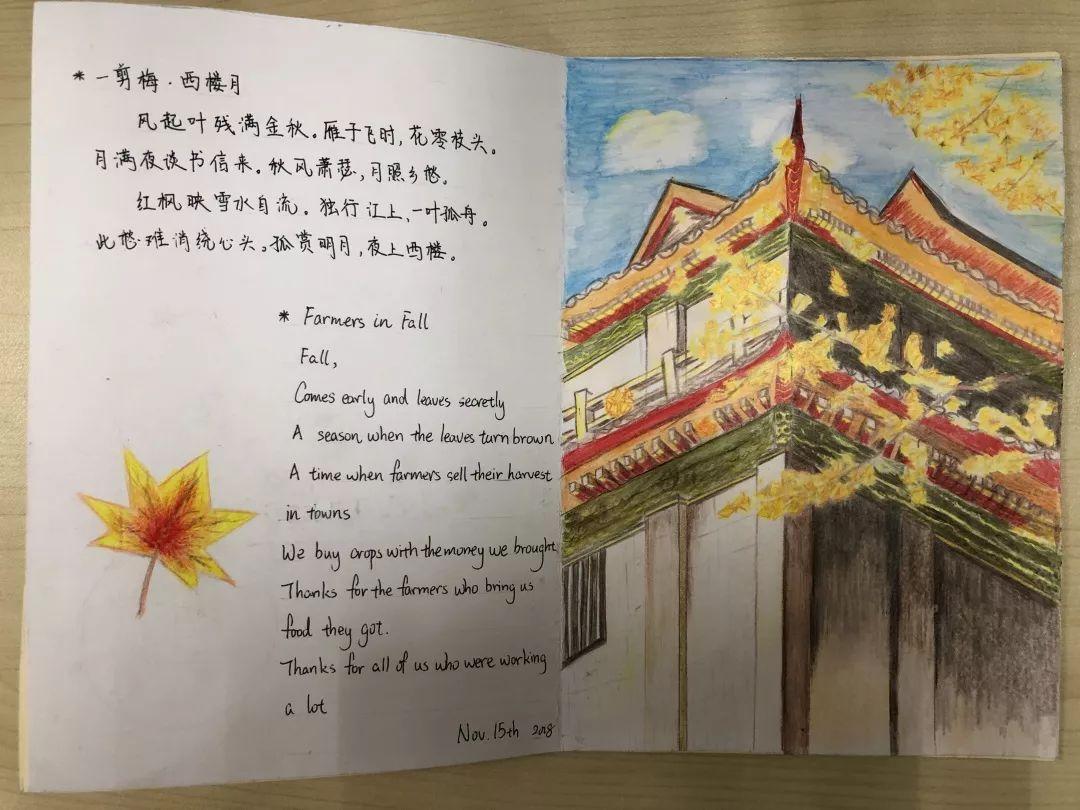 * 一剪梅·西楼月
风起叶残满金秋。雁于飞时,花零枝头。
月满夜谈书信来。秋风萧瑟,月照乡愁。
红枫映雪水自流。独行江上,一叶孤舟。
此愁难消绕心头。孤赏明月,夜上西楼。
* Farmers in Fall
Fall,
Comes early and leaves secretly
A season when the leaves turn brown
A time when farmers sell their harvest
in towns
We buy crops with the money we brought
Thanks for the farmers who bring us
food they got.
Thanks for all of us who were working
a lot
Nov. 15th 2018